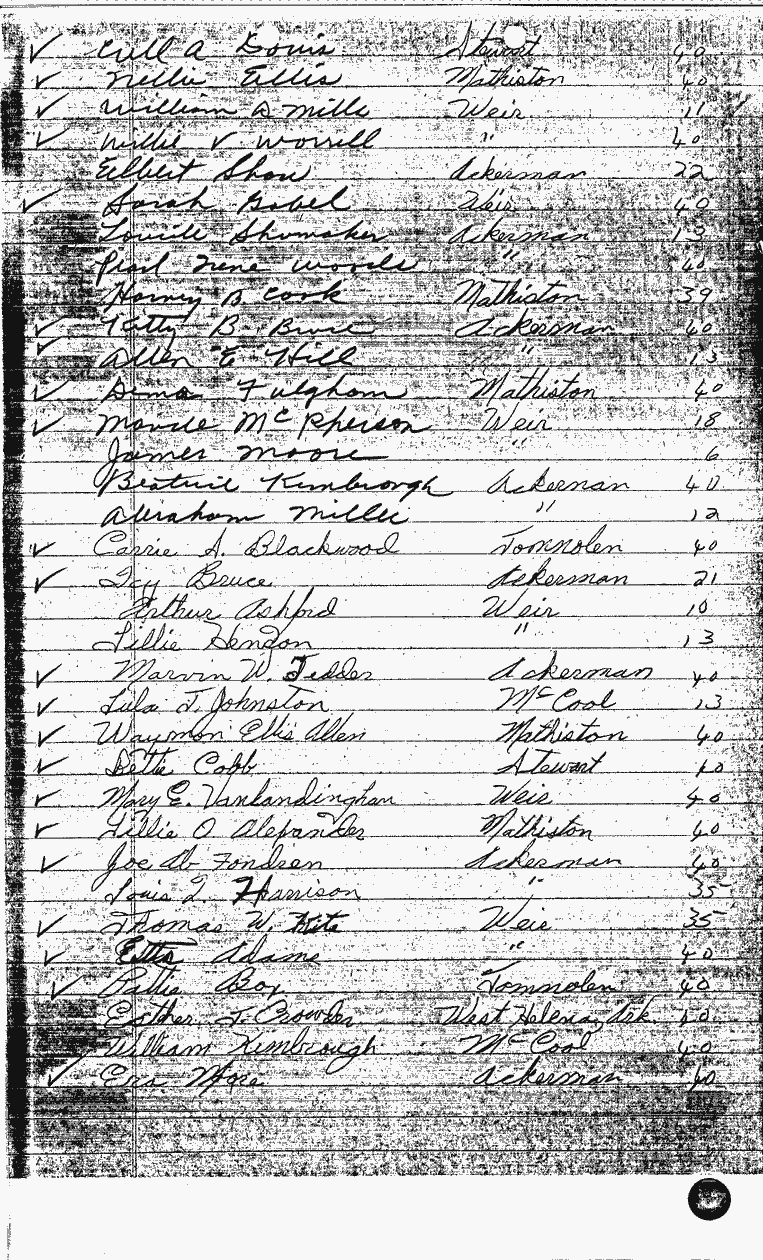 ✓ A Stewart 40
✓ Nellie Ellis Mathiston 40
✓ William D Mills Weir 11
✓ Willie V Worrell " 40
Elbert Shaw Ackerman 22
✓ Sarah Weir 40
Louise Shumaker Ackerman 13
Pearl Irene Woods " 40
Harvey B Cook Mathiston 39
✓ Kitty B. Bruce Ackerman 40
✓ Allen E Hill " 13
✓ Fulgham Mathiston 40
✓ Maude McPherson Weir 18
James Moore " 6
Beatrice Kimbrough Ackerman 40
Abraham Miller " 12
✓ Carrie A. Blackwood Tomnolen 40
✓ Bruce Ackerman 21
Arthur Ashford Weir 10
Lillie Hendon " 13
✓ Marvin W. Tedder Ackerman 40
✓ Lula J. Johnston McCool 13
✓ Waymon Ellis Allen Mathiston 40
✓ Bettie Cobb Stewart 40
✓ Mary E. Vanlandingham Weir 40
✓ Lillie O. Alexander Mathiston 40
✓ Joe Ab Fondren Ackerman 40
Louis Harrison " 35
✓ Thomas W. Kite Weir 35
✓ Etta Adams " 40
✓ Pattie Box Tomnolen 40
Esther J. Crowder West Helena, Ark. 40
William Kimbrough McCool 40
✓ Ackerman 40